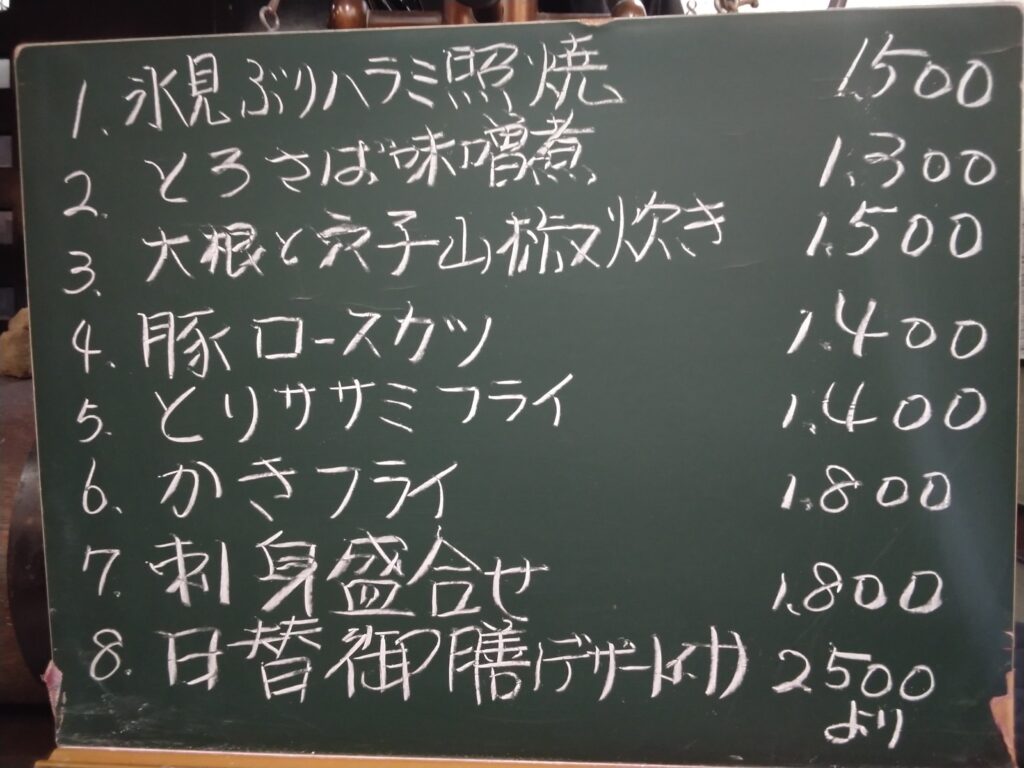 1. 氷見ぶりハラミ照焼 1,500
2. とろさば味噌煮 1,300
3. 大根と穴子山椒炊き 1,500
4. 豚ロースカツ 1,400
5. とりササミフライ 1,400
6. かきフライ 1,800
7. 刺身盛合せ 1,800
8. 日替御膳(デザート付) 2500
より